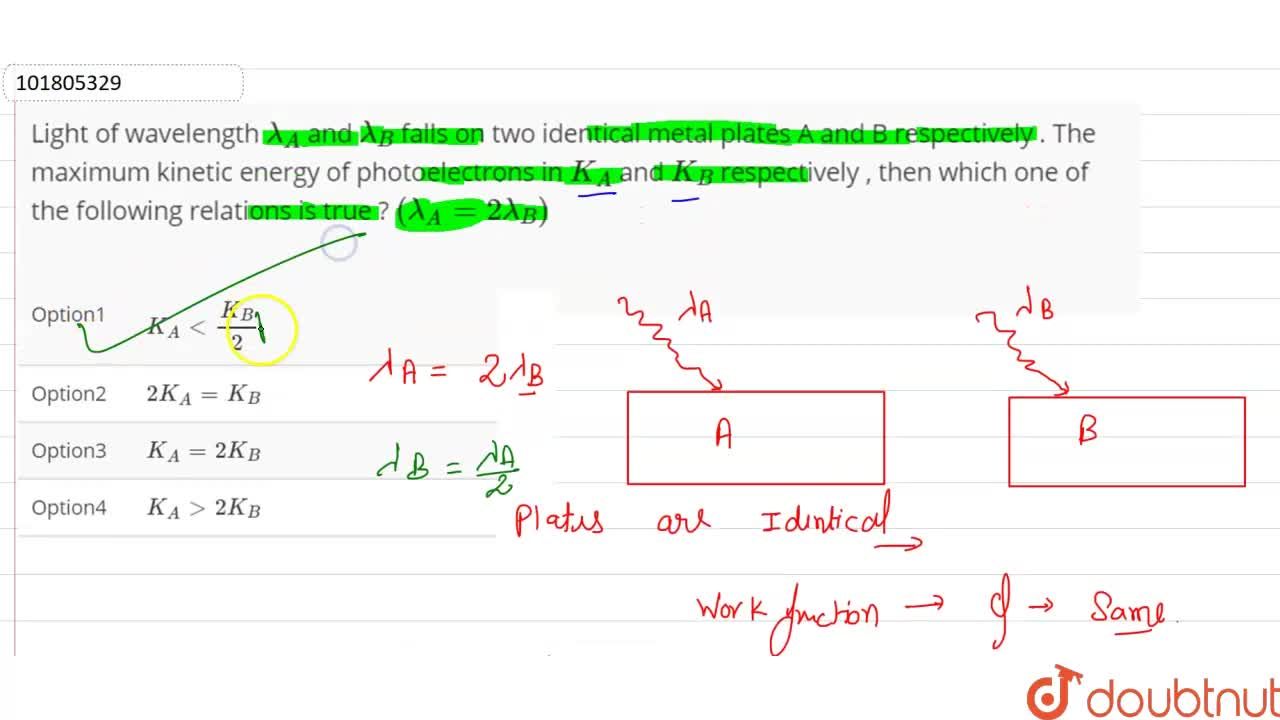 101805329
Light of wavelength λ_A and λ_B falls on two identical metal plates A and B respectively . The
maximum kinetic energy of photoelectrons in K_A and K_B respectively , then which one of
the following relations is true ? (λ_A = 2λ_B)
Option1 K_A < K_B/2
Option2 2K_A = K_B
Option3 K_A = 2K_B
Option4 K_A > 2K_B
λA = 2λB
λB = λA/2
λA
λB
A
B
Plates are Identical →
Work function → ϕ → Same.
doubtnut